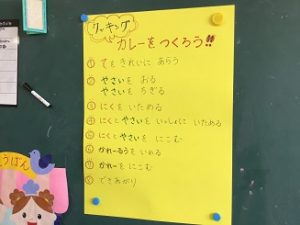 クッキング
カレーをつくろう!!
① てをきれいに あらう
② やさいを おる
やさいを ちぎる
③ にくを いためる
④ にくとやさいを いっしょに いためる
⑤ にくとやさいを にこむ
⑥ かれーるうを いれる
⑦ かれーを にこむ
⑧ できあがり
うばん